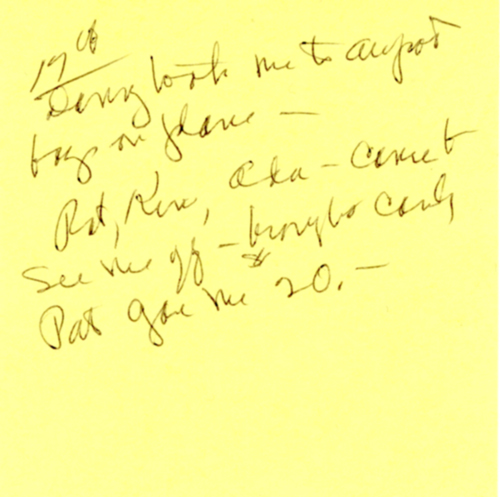 19th
Denny took me to airport
bags on plane —
Pat, Ken, Ada – came to
See me off – brought candy
Pat gave me $20.—